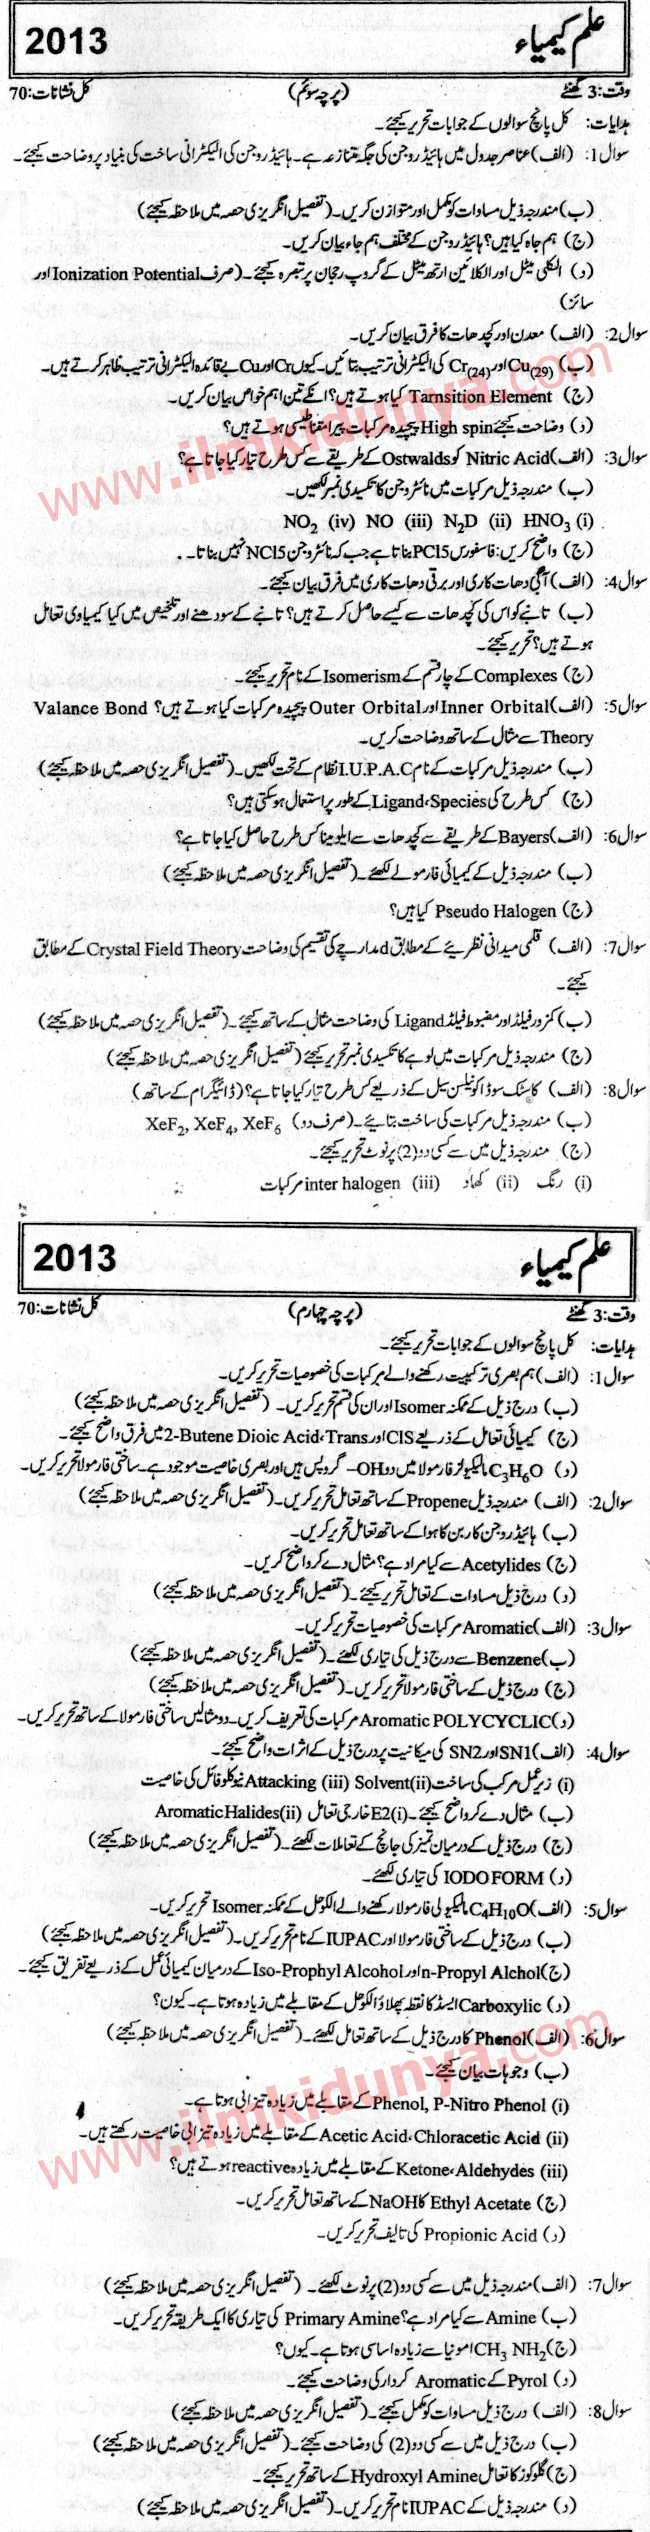 2013 علم کیمیاء
وقت: 3 گھنٹے (پرچہ سوئم) کل نشانات: 70
ہدایات: کل پانچ سوالوں کے جوابات تحریر کیجئے۔
سوال1: (الف) عناصر جدول میں ہائیڈروجن کی جگہ متنازعہ ہے۔ ہائیڈروجن کی الیکٹرانی ساخت کی بنیاد پر وضاحت کیجئے۔
(ب) مندرجہ ذیل مساوات کو مکمل اور متوازن کریں۔ (تفصیل انگریزی حصہ میں ملاحظہ کیجئے)
(ج) ہم جاہ کیا ہیں؟ ہائیڈروجن کے مختلف ہم جاء بیان کریں۔
(د) الکلی میٹل اور الکلائین ارتھ میٹل کے گروپ رجحان پر تبصرہ کیجئے۔ (صرف Ionization Potential اور
سائز)
سوال2: (الف) معدن اور کچدھات کا فرق بیان کریں۔
(ب) Cu(29) اور Cr(24) کی الیکٹرانی ترتیب بتائیں۔ کیوں Cr اور Cu بے قائدہ الیکٹرانی ترتیب ظاہر کرتے ہیں۔
(ج) Tarnsition Element کیا ہوتے ہیں؟ انکے تین اہم خواص بیان کریں۔
(د) وضاحت کیجئے High spin پیچیدہ مرکبات پیرا مقناطیسی ہوتے ہیں؟
سوال3: (الف) Nitric Acid کو Ostwalds کے طریقے سے کس طرح تیار کیا جاتا ہے؟
(ب) مندرجہ ذیل مرکبات میں نائٹروجن کا تکسیدی نمبر لکھیں۔
(i) HNO3 (ii) N2D (iii) NO (iv) NO2
(ج) واضح کریں: فاسفورس PCl5 بناتا ہے جب کہ نائٹروجن NCl5 نہیں بناتا۔
سوال4: (الف) آبی دھات کاری اور برقی دھات کاری میں فرق بیان کیجئے۔
(ب) تانبے کو اس کی کچدھات سے کیسے حاصل کرتے ہیں؟ تانبے کے سودھنے اور تلخیص میں کیا کیمیاوی تعامل
ہوتے ہیں؟ تحریر کیجئے۔
(ج) Complexes کے چار قسم کے Isomerism کے نام تحریر کیجئے۔
سوال5: (الف) Inner Orbital اور Outer Orbital پیچیدہ مرکبات کیا ہوتے ہیں؟ Valance Bond
Theory سے مثال کے ساتھ وضاحت کریں۔
(ب) مندرجہ ذیل مرکبات کے نام I.U.P.A.C نظام کے تحت لکھیں۔ (تفصیل انگریزی حصہ میں ملاحظہ کیجئے)
(ج) کس طرح کی Ligand، Species کے طور پر استعمال ہوسکتی ہیں؟
سوال6: (الف) Bayers کے طریقے سے کچدھات سے ایلومینا کس طرح حاصل کیا جاتا ہے؟
(ب) مندرجہ ذیل کے کیمیائی فارمولے لکھئے۔ (تفصیل انگریزی حصہ میں ملاحظہ کیجئے)
(ج) Pseudo Halogen کیا ہیں؟
سوال7: (الف) قلمی میدانی نظریئے کے مطابق d مدارچے کی تقسیم کی وضاحت Crystal Field Theory کے مطابق
کیجئے۔
(ب) کمزور فیلڈ اور مضبوط فیلڈ Ligand کی وضاحت مثال کے ساتھ کیجئے۔ (تفصیل انگریزی حصہ میں ملاحظہ کیجئے)
(ج) مندرجہ ذیل مرکبات میں لوہے کا تکسیدی نمبر تحریر کیجئے (تفصیل انگریزی حصہ میں ملاحظہ کیجئے)
سوال8: (الف) کاسٹک سوڈا کو نیلسن سیل کے ذریعے کس طرح تیار کیا جاتا ہے؟ (ڈائیگرام کے ساتھ)
(ب) مندرجہ ذیل مرکبات کی ساخت بتایئے۔ (صرف دو) XeF2, XeF4, XeF6
(ج) مندرجہ ذیل میں سے کسی دو (2) پر نوٹ تحریر کیجئے۔
(i) رنگ (ii) کھاد (iii) inter halogen مرکبات
2013 علم کیمیاء
وقت: 3 گھنٹے (پرچہ چہارم) کل نشانات: 70
ہدایات: کل پانچ سوالوں کے جوابات تحریر کیجئے۔
سوال1: (الف) ہم بصری ترکیبیت رکھنے والے مرکبات کی خصوصیات تحریر کریں۔
(ب) درج ذیل کے ممکنہ Isomer اور ان کی قسم تحریر کریں۔ (تفصیل انگریزی حصہ میں ملاحظہ کیجئے)
(ج) کیمیائی تعامل کے ذریعے CIS اور Trans، 2-Butene Dioic Acid میں فرق واضح کیجئے۔
(د) C3H6O مالیکیولر فارمولا میں دو OH- گروپس ہیں اور بصری خاصیت موجود ہے۔ ساختی فارمولا تحریر کریں۔
سوال2: (الف) مندرجہ ذیل Propene کے ساتھ تعامل تحریر کریں۔ (تفصیل انگریزی حصہ میں ملاحظہ کیجئے)
(ب) ہائیڈروجن کاربن کا ہوا کے ساتھ تعامل تحریر کریں۔
(ج) Acetylides سے کیا مراد ہے؟ مثال دے کر واضح کریں۔
(د) درج ذیل مساوات کے تعامل تحریر کیجئے۔ (تفصیل انگریزی حصہ میں ملاحظہ کیجئے)
سوال3: (الف) Aromatic مرکبات کی خصوصیات تحریر کریں۔
(ب) Benzene سے درج ذیل کی تیاری لکھئے۔ (تفصیل انگریزی حصہ میں ملاحظہ کیجئے)
(ج) درج ذیل کے ساختی فارمولا تحریر کریں۔ (تفصیل انگریزی حصہ میں ملاحظہ کیجئے)
(د) Aromatic POLYCYCLIC مرکبات کی تعریف کریں۔ دو مثالیں ساختی فارمولا کے ساتھ تحریر کریں۔
سوال4: (الف) SN1 اور SN2 کی میکانیت پر درج ذیل کے اثرات واضح کیجئے۔
(i) زیر عمل مرکب کی ساخت (ii) Solvent (iii) Attacking نیوکلوفائل کی خاصیت
(ب) مثال دے کر واضح کیجئے۔ (i) E2 خارجی تعامل (ii) Aromatic Halides
(ج) درج ذیل کے درمیان تمیز کی جانچ کے تعاملات لکھئے۔ (تفصیل انگریزی حصہ میں ملاحظہ کیجئے)
(د) IODO FORM کی تیاری لکھئے۔
سوال5: (الف) C4H10O مالیکیولی فارمولا رکھنے والے الکوحل کے ممکنہ Isomer تحریر کریں۔
(ب) درج ذیل کے ساختی فارمولا اور IUPAC کے نام تحریر کریں۔ (تفصیل انگریزی حصہ میں ملاحظہ کیجئے)
(ج) n-Propyl Alchol اور Iso-Prophyl Alcohol کے درمیان کیمیائی عمل کے ذریعے تفریق کیجئے۔
(د) Carboxylic ایسڈ کا نقطہ پھلاؤ الکوحل کے مقابلے میں زیادہ ہوتا ہے۔ کیوں؟
سوال6: (الف) Phenol کا درج ذیل کے ساتھ تعامل لکھئے۔ (تفصیل انگریزی حصہ میں ملاحظہ کیجئے)
(ب) وجوہات بیان کیجئے۔
(i) Phenol, P-Nitro Phenol کے مقابلے میں زیادہ تیزابی ہوتا ہے۔
(ii) Acetic Acid، Chloracetic Acid کے مقابلے میں زیادہ تیزابی خاصیت رکھتے ہیں۔
(iii) Ketone، Aldehydes کے مقابلے میں زیادہ reactive ہوتے ہیں؟
(ج) Ethyl Acetate کا NaOH کے ساتھ تعامل تحریر کریں۔
(د) Propionic Acid کی تالیف تحریر کریں۔
سوال7: (الف) مندرجہ ذیل میں سے کسی دو (2) پر نوٹ لکھئے۔ (تفصیل انگریزی حصہ میں ملاحظہ کیجئے)
(ب) Amine سے کیا مراد ہے؟ Primary Amine کی تیاری کا ایک طریقہ تحریر کریں۔
(ج) CH3 NH2 امونیا سے زیادہ اساسی ہوتا ہے۔ کیوں؟
(د) Pyrol کے Aromatic کردار کی وضاحت کیجئے۔
سوال8: (الف) درج ذیل مساوات کو مکمل کیجئے۔ (تفصیل انگریزی حصہ میں ملاحظہ کیجئے)
(ب) درج ذیل میں سے کسی دو (2) کی وضاحت کیجئے۔ (تفصیل انگریزی حصہ میں ملاحظہ کیجئے)
(ج) گلوکوز کا تعامل Hydroxyl Amine کے ساتھ تحریر کیجئے۔
(د) مندرجہ ذیل کے IUPAC نام تحریر کریں۔ (تفصیل انگریزی حصہ میں ملاحظہ کیجئے)
www.ilmkidunya.com
www.ilmkidunya.com